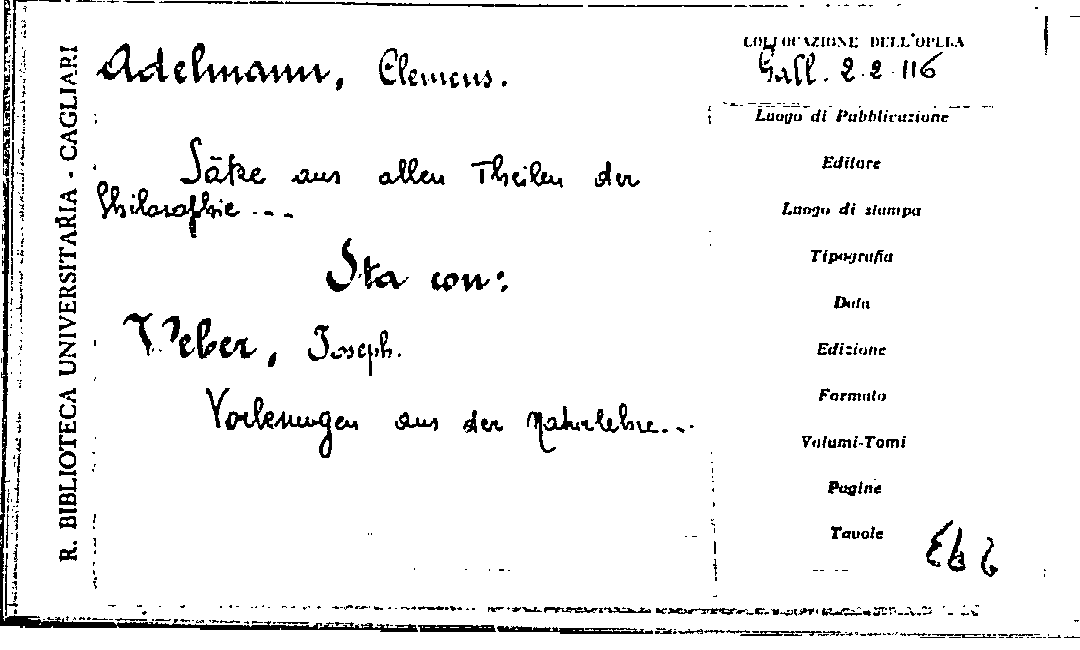 R. BIBLIOTECA UNIVERSITARIA - CAGLIARI
Adelmann, Clemens.
Sätze aus allen Theilen der
Philosophie ...
Sta con:
Weber, Joseph.
Vorlesungen aus der Naturlehre...
COLLOCAZIONE DELL'OPERA
Gall. 2.2.116
Luogo di Pubblicazione
Editore
Luogo di stampa
Tipografia
Data
Edizione
Formato
Volumi-Tomi
Pagine
Tavole